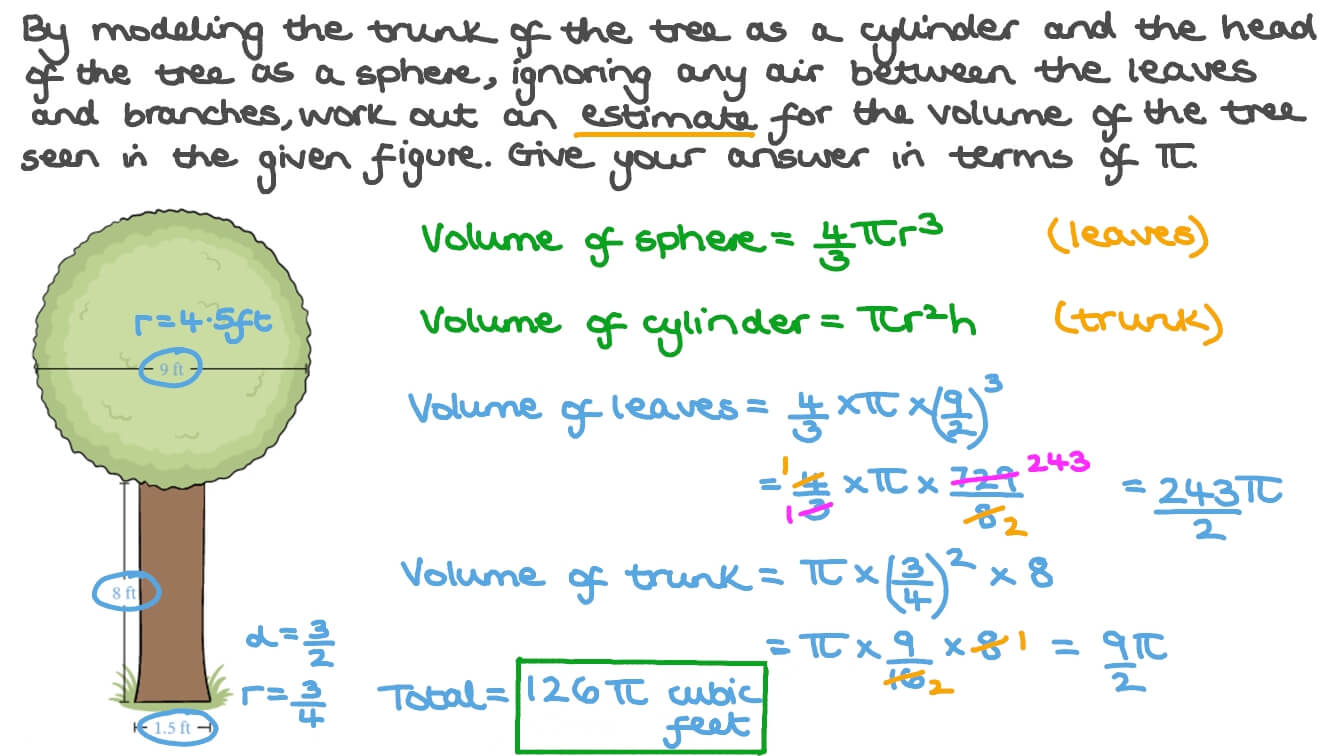 By modeling the trunk of the tree as a cylinder and the head
of the tree as a sphere, ignoring any air between the leaves
and branches, work out an estimate for the volume of the tree
seen in the given figure. Give your answer in terms of π.
Volume of sphere = 4/3 πr³ (leaves)
r=4.5ft
Volume of cylinder = πr²h (trunk)
9 ft
Volume of leaves = 4/3 × π × (9/2)³
= 4/3 1 1 × π × 729/8 243 2 = 243π/2
Volume of trunk = π × (3/4)² × 8
8 ft
d = 3/2
= π × 9/16 2 × 8 1 = 9π/2
r = 3/4
Total = 126π cubic
feet
1.5 ft